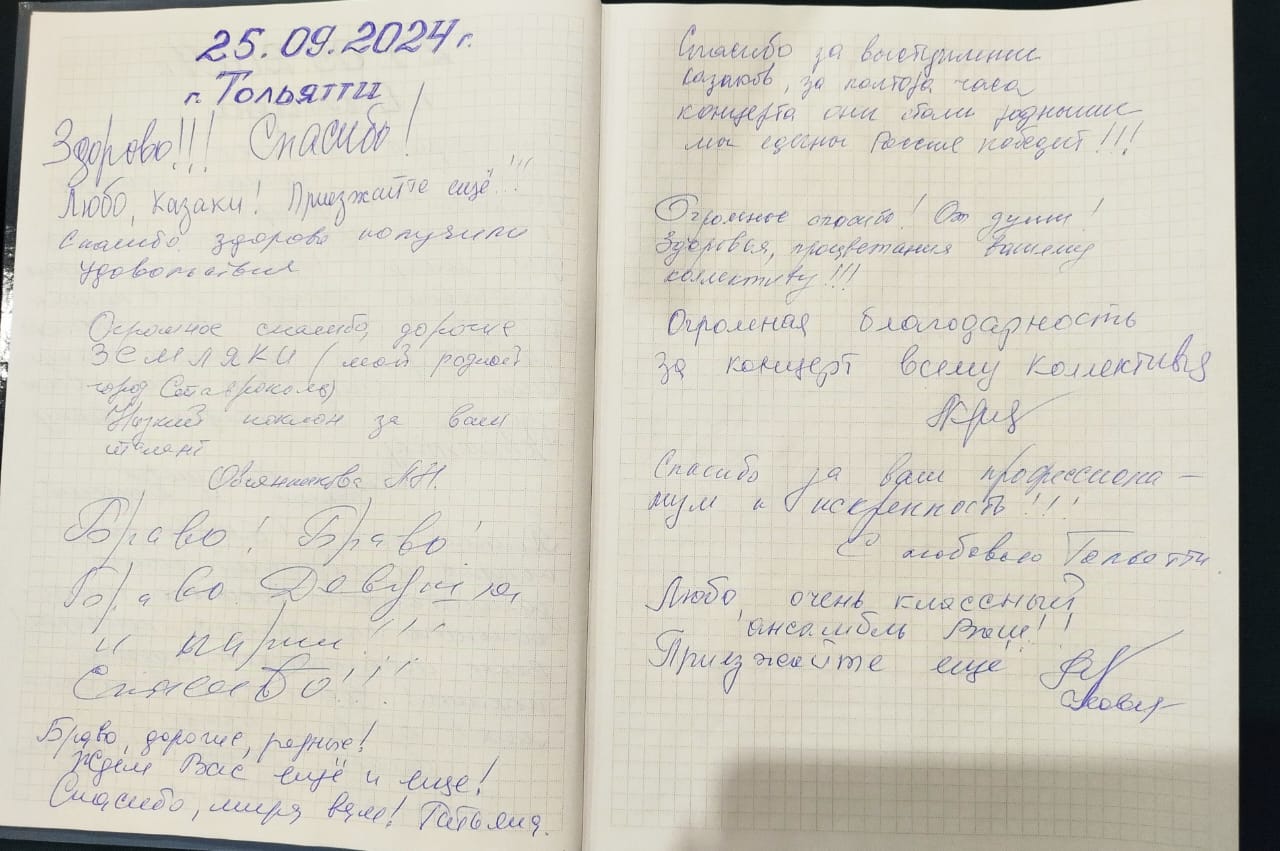 25.09.2024 г.
г. Тольятти
Здорово!!! Спасибо!
Любо, Казаки! Приезжайте ещё!!!
Спасибо здорово получили
удовольствия
Огромное спасибо, дорогие
ЗЕМЛЯКИ (мой родной
город Ставрополь)
Низкий поклон за ваш
талант
Овсянникова А.Н.
Браво! Браво!
Браво Девушки
и парни!!!
Спасибо!!!
Браво, дорогие, родные!
Ждём Вас ещё и еще!
Спасибо, мира вам! Татьяна.
Спасибо за выступление
казаков, за полтора часа
концерта они стали родными
мы едины Россия победит!!!
Огромное спасибо! От души!
Здоровья, процветания Вашему
коллективу!!!
Огромная благодарность
за концерт всему коллективу
Спасибо за ваш профессиона-
лизм и искренность!!!
С любовью Тольятти.
Любо, очень классный
ансамбль Ваш!!
Приезжайте ещё